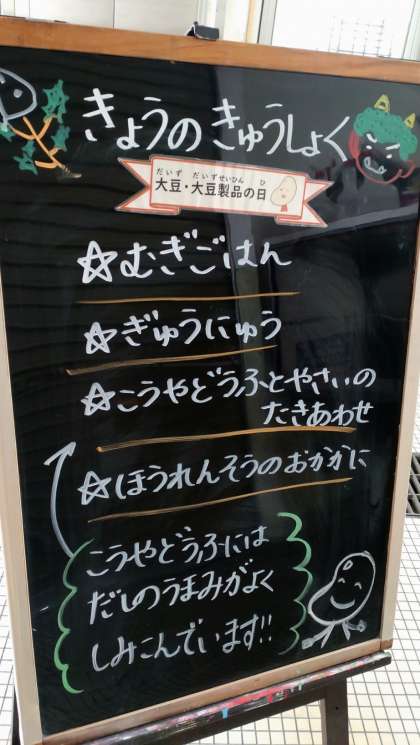 きょうの きゅうしょく
だいず だいずせいひん ひ
大豆・大豆製品の日
☆むぎごはん
☆ぎゅうにゅう
☆こうやどうふとやさいの
たきあわせ
☆ほうれんそうのおかかに
こうやどうふには
だしのうまみがよく
しみこんでいます!!